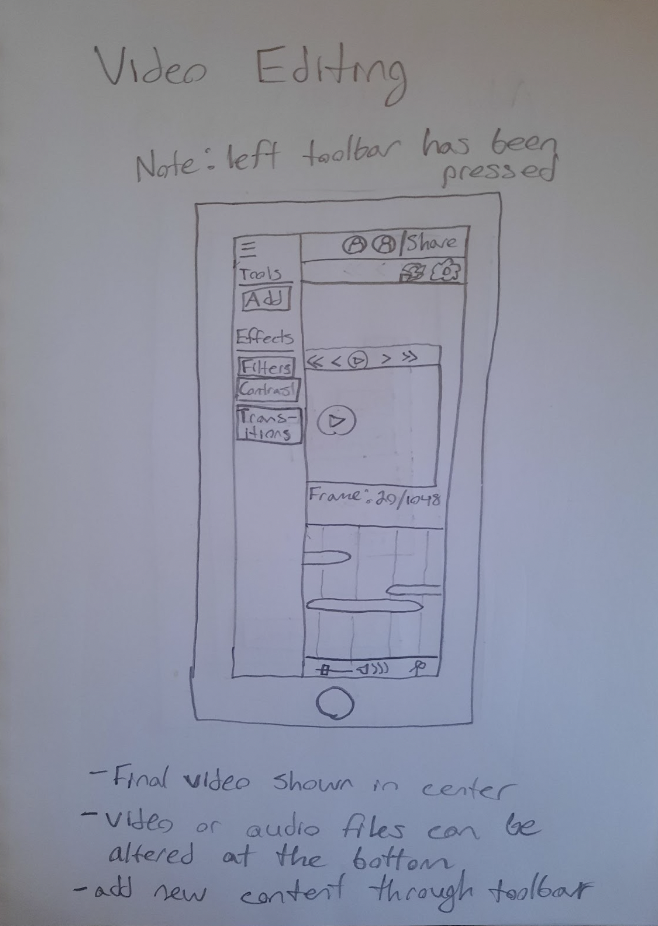 Video Editing
Note: left toolbar has been
pressed
/Share
Tools
Add
Effects
Filters
Contrast
Trans-
itions
Frame: 20/1048
- Final video shown in center
- video or audio files can be
altered at the bottom
- add new content through toolbar